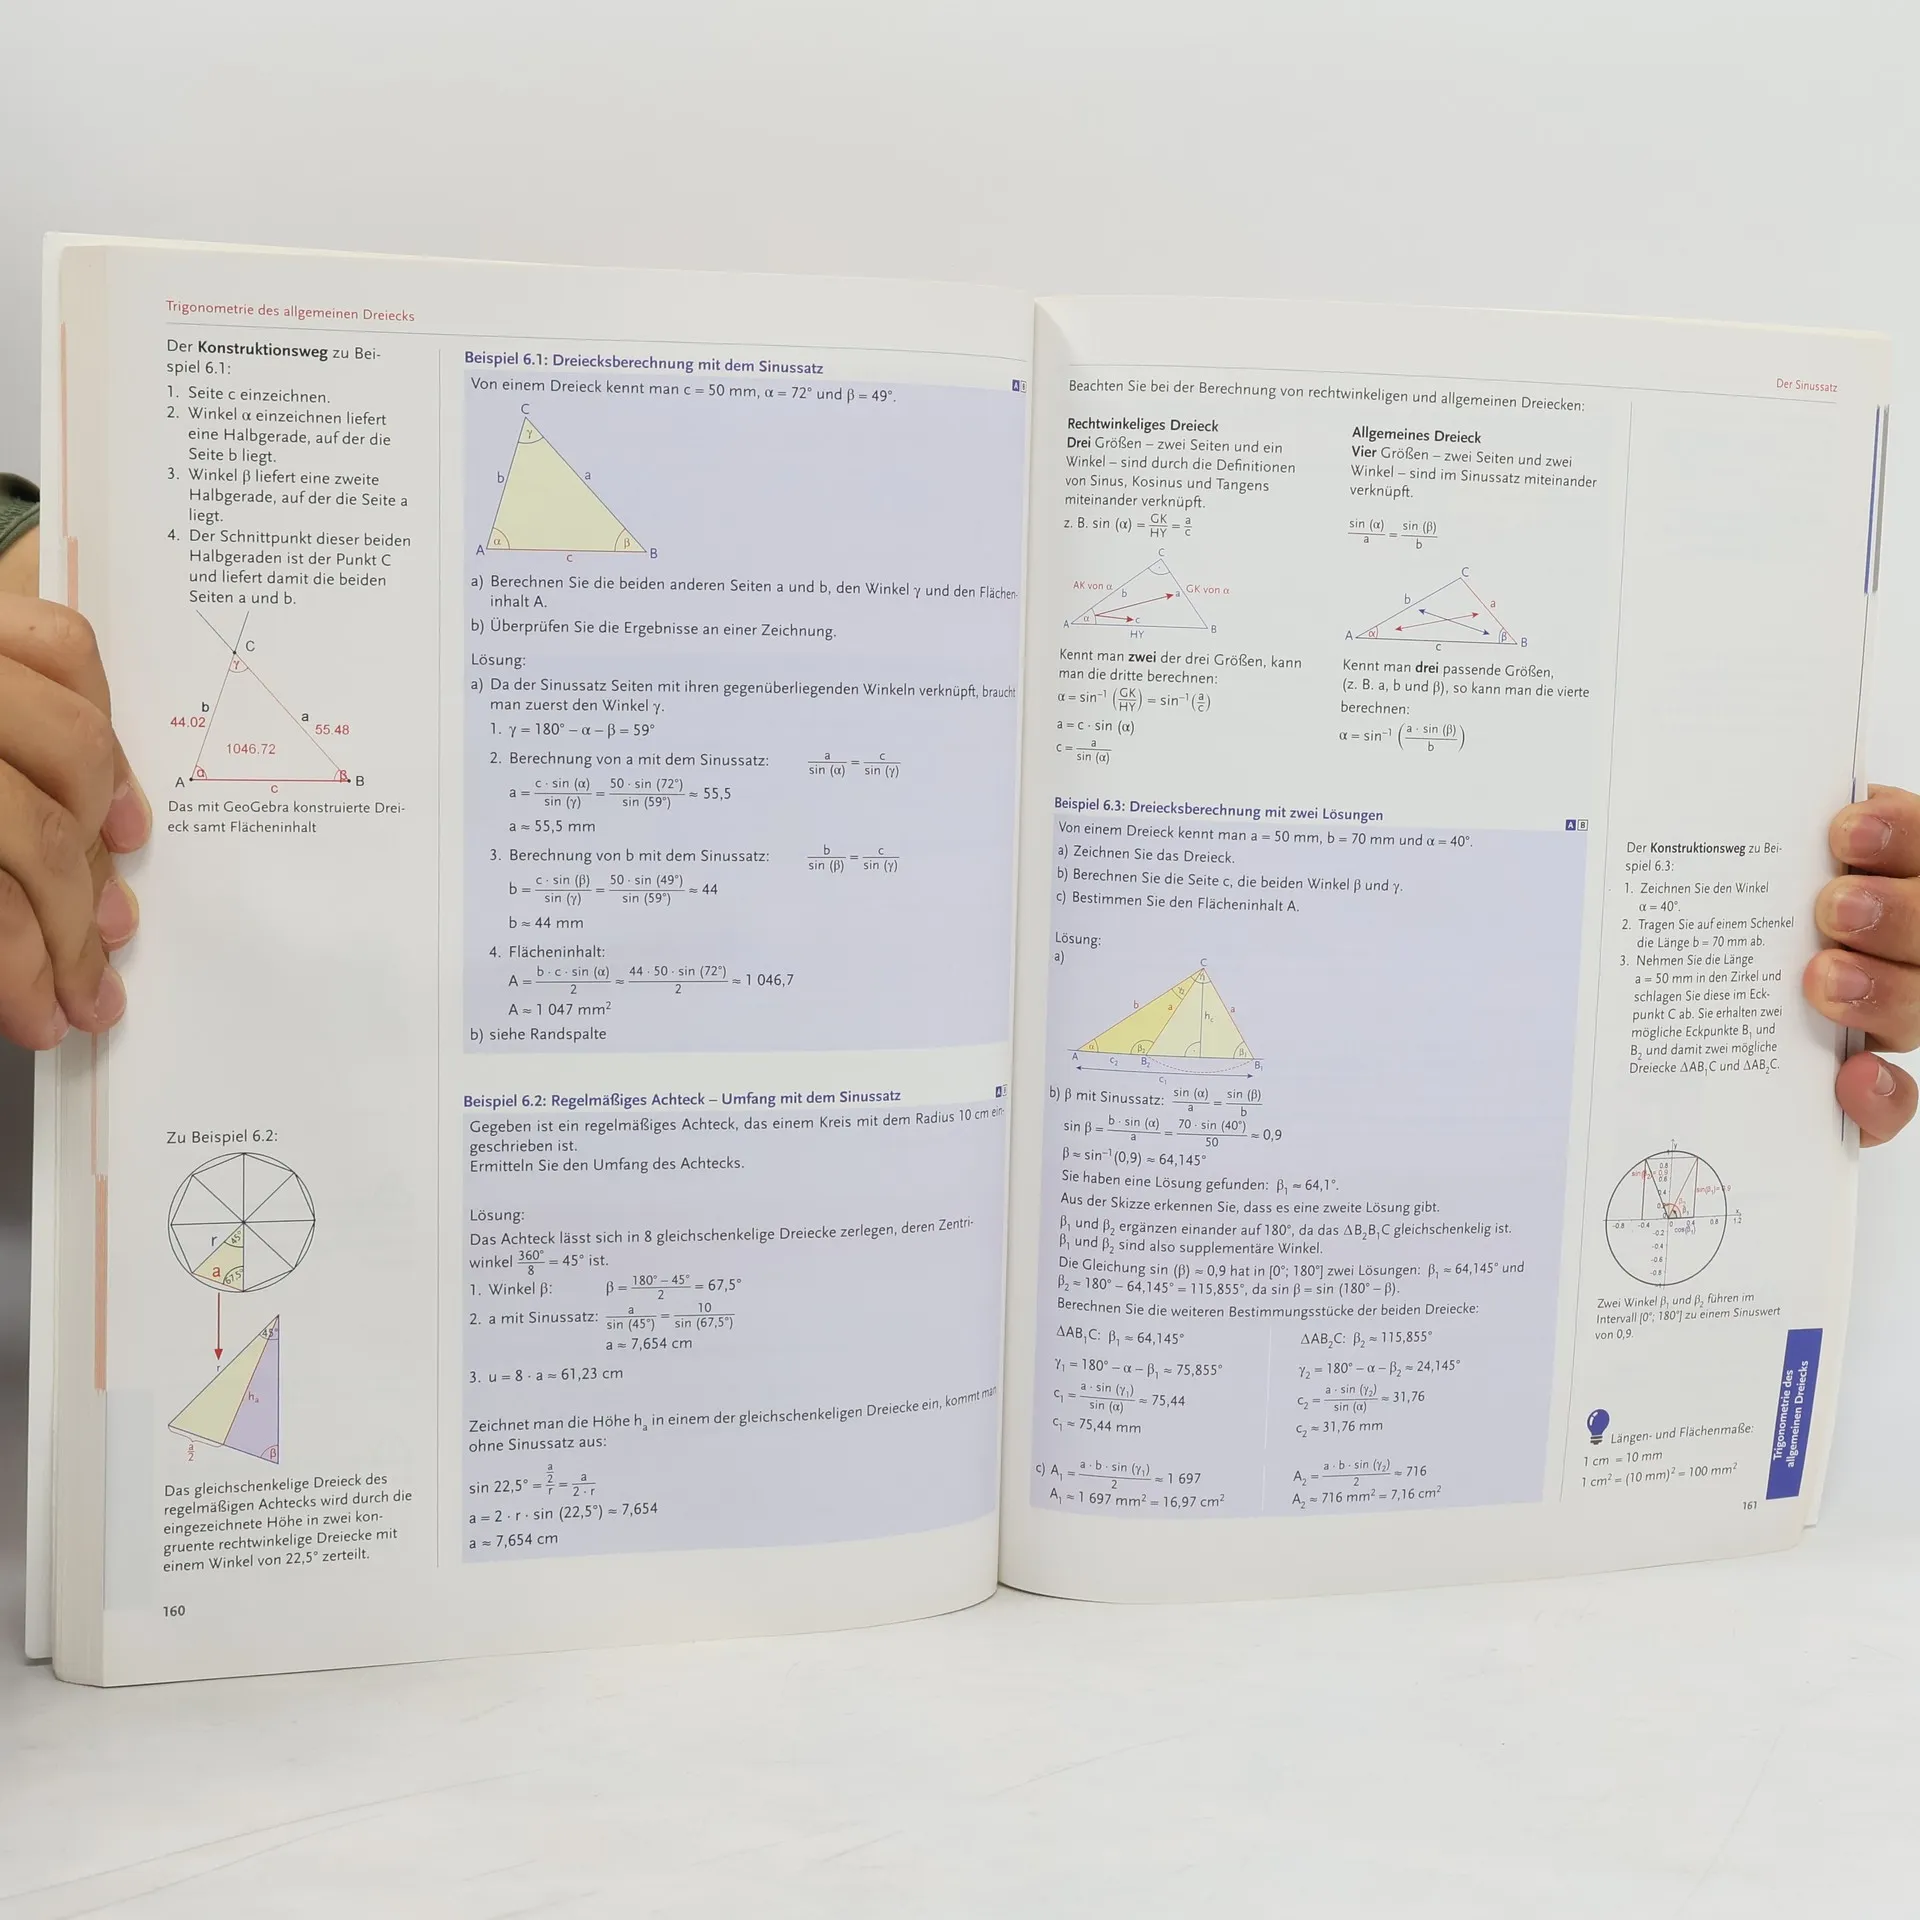 Trigonometrie des allgemeinen Dreiecks
Der Konstruktionsweg zu Bei-
spiel 6.1:
1. Seite c einzeichnen.
2. Winkel α einzeichnen liefert
eine Halbgerade, auf der die
Seite b liegt.
3. Winkel β liefert eine zweite
Halbgerade, auf der die Seite a
liegt.
4. Der Schnittpunkt dieser beiden
Halbgeraden ist der Punkt C
und liefert damit die beiden
Seiten a und b.
C
γ
b
44.02
a
55.48
1046.72
A α β B
c
Das mit GeoGebra konstruierte Drei-
eck samt Flächeninhalt
Zu Beispiel 6.2:
r 45°
a 67,5°
45°
r
hₐ
a/2
β
Das gleichschenkelige Dreieck des
regelmäßigen Achtecks wird durch die
eingezeichnete Höhe in zwei kon-
gruente rechtwinkelige Dreiecke mit
einem Winkel von 22,5° zerteilt.
160
Beispiel 6.1: Dreiecksberechnung mit dem Sinussatz
A B
Von einem Dreieck kennt man c = 50 mm, α = 72° und β = 49°.
C
γ
b a
A α β B
c
a) Berechnen Sie die beiden anderen Seiten a und b, den Winkel γ und den Flächen-
inhalt A.
b) Überprüfen Sie die Ergebnisse an einer Zeichnung.
Lösung:
a) Da der Sinussatz Seiten mit ihren gegenüberliegenden Winkeln verknüpft, braucht
man zuerst den Winkel γ.
1. γ = 180° – α – β = 59°
2. Berechnung von a mit dem Sinussatz: a/sin (α) = c/sin (γ)
a = c · sin (α)/sin (γ) = 50 · sin (72°)/sin (59°) ≈ 55,5
a ≈ 55,5 mm
3. Berechnung von b mit dem Sinussatz: b/sin (β) = c/sin (γ)
b = c · sin (β)/sin (γ) = 50 · sin (49°)/sin (59°) ≈ 44
b ≈ 44 mm
4. Flächeninhalt:
A = b · c · sin (α)/2 ≈ 44 · 50 · sin (72°)/2 ≈ 1 046,7
A ≈ 1 047 mm²
b) siehe Randspalte
Beispiel 6.2: Regelmäßiges Achteck – Umfang mit dem Sinussatz
A
Gegeben ist ein regelmäßiges Achteck, das einem Kreis mit dem Radius 10 cm ein-
geschrieben ist.
Ermitteln Sie den Umfang des Achtecks.
Lösung:
Das Achteck lässt sich in 8 gleichschenkelige Dreiecke zerlegen, deren Zentri-
winkel 360°/8 = 45° ist.
1. Winkel β: β = 180° – 45°/2 = 67,5°
2. a mit Sinussatz: a/sin (45°) = 10/sin (67,5°)
a ≈ 7,654 cm
3. u = 8 · a ≈ 61,23 cm
Zeichnet man die Höhe hₐ in einem der gleichschenkeligen Dreiecke ein, kommt man
ohne Sinussatz aus:
sin 22,5° = a/2/r = a/2 · r
a = 2 · r · sin (22,5°) ≈ 7,654
a ≈ 7,654 cm
Der Sinussatz
Beachten Sie bei der Berechnung von rechtwinkeligen und allgemeinen Dreiecken:
Rechtwinkeliges Dreieck
Drei Größen – zwei Seiten und ein
Winkel – sind durch die Definitionen
von Sinus, Kosinus und Tangens
miteinander verknüpft.
z. B. sin (α) = GK/HY = a/c
C
AK von α b a GK von α
A α c B
HY
Kennt man zwei der drei Größen, kann
man die dritte berechnen:
α = sin⁻¹ (GK/HY) = sin⁻¹(a/c)
a = c · sin (α)
c = a/sin (α)
Allgemeines Dreieck
Vier Größen – zwei Seiten und zwei
Winkel – sind im Sinussatz miteinander
verknüpft.
sin (α)/a = sin (β)/b
C
b a
A α β B
c
Kennt man drei passende Größen,
(z. B. a, b und β), so kann man die vierte
berechnen:
α = sin⁻¹ (a · sin (β)/b)
Beispiel 6.3: Dreiecksberechnung mit zwei Lösungen
A B
Von einem Dreieck kennt man a = 50 mm, b = 70 mm und α = 40°.
a) Zeichnen Sie das Dreieck.
b) Berechnen Sie die Seite c, die beiden Winkel β und γ.
c) Bestimmen Sie den Flächeninhalt A.
Lösung:
a)
C
γ₂ γ₁
b a h꜀ a
A α β₂ β₁
c₂ B₂ B₁
c₁
b) β mit Sinussatz: sin (α)/a = sin (β)/b
sin β = b · sin (α)/a = 70 · sin (40°)/50 ≈ 0,9
β ≈ sin⁻¹(0,9) ≈ 64,145°
Sie haben eine Lösung gefunden: β₁ ≈ 64,1°.
Aus der Skizze erkennen Sie, dass es eine zweite Lösung gibt.
β₁ und β₂ ergänzen einander auf 180°, da das ΔB₁B₂C gleichschenkelig ist.
β₁ und β₂ sind also supplementäre Winkel.
Die Gleichung sin (β) ≈ 0,9 hat in [0°; 180°] zwei Lösungen: β₁ ≈ 64,145° und
β₂ ≈ 180° – 64,145° = 115,855°, da sin β = sin (180° – β).
Berechnen Sie die weiteren Bestimmungsstücke der beiden Dreiecke:
ΔAB₁C: β₁ ≈ 64,145°
γ₁ = 180° – α – β₁ ≈ 75,855°
c₁ = a · sin (γ₁)/sin (α) ≈ 75,44
c₁ ≈ 75,44 mm
c) A₁ = a · b · sin (γ₁)/2 ≈ 1 697
A₁ ≈ 1 697 mm² = 16,97 cm²
ΔAB₂C: β₂ ≈ 115,855°
γ₂ = 180° – α – β₂ ≈ 24,145°
c₂ = a · sin (γ₂)/sin (α) ≈ 31,76
c₂ ≈ 31,76 mm
A₂ = a · b · sin (γ₂)/2 ≈ 716
A₂ ≈ 716 mm² = 7,16 cm²
Der Konstruktionsweg zu Bei-
spiel 6.3:
1. Zeichnen Sie den Winkel
α = 40°.
2. Tragen Sie auf einem Schenkel
die Länge b = 70 mm ab.
3. Nehmen Sie die Länge
a = 50 mm in den Zirkel und
schlagen Sie diese im Eck-
punkt C ab. Sie erhalten zwei
mögliche Eckpunkte B₁ und
B₂ und damit zwei mögliche
Dreiecke ΔAB₁C und ΔAB₂C.
-0.8 -0.4 0 0.4 0.8 1.2
-0.2
-0.4
-0.6
-0.8
Zwei Winkel β₁ und β₂ führen im
Intervall [0°; 180°] zu einem Sinuswert
von 0,9.
Längen- und Flächenmaße:
1 cm = 10 mm
1 cm² = (10 mm)² = 100 mm²
Trigonometrie des
allgemeinen Dreiecks
161